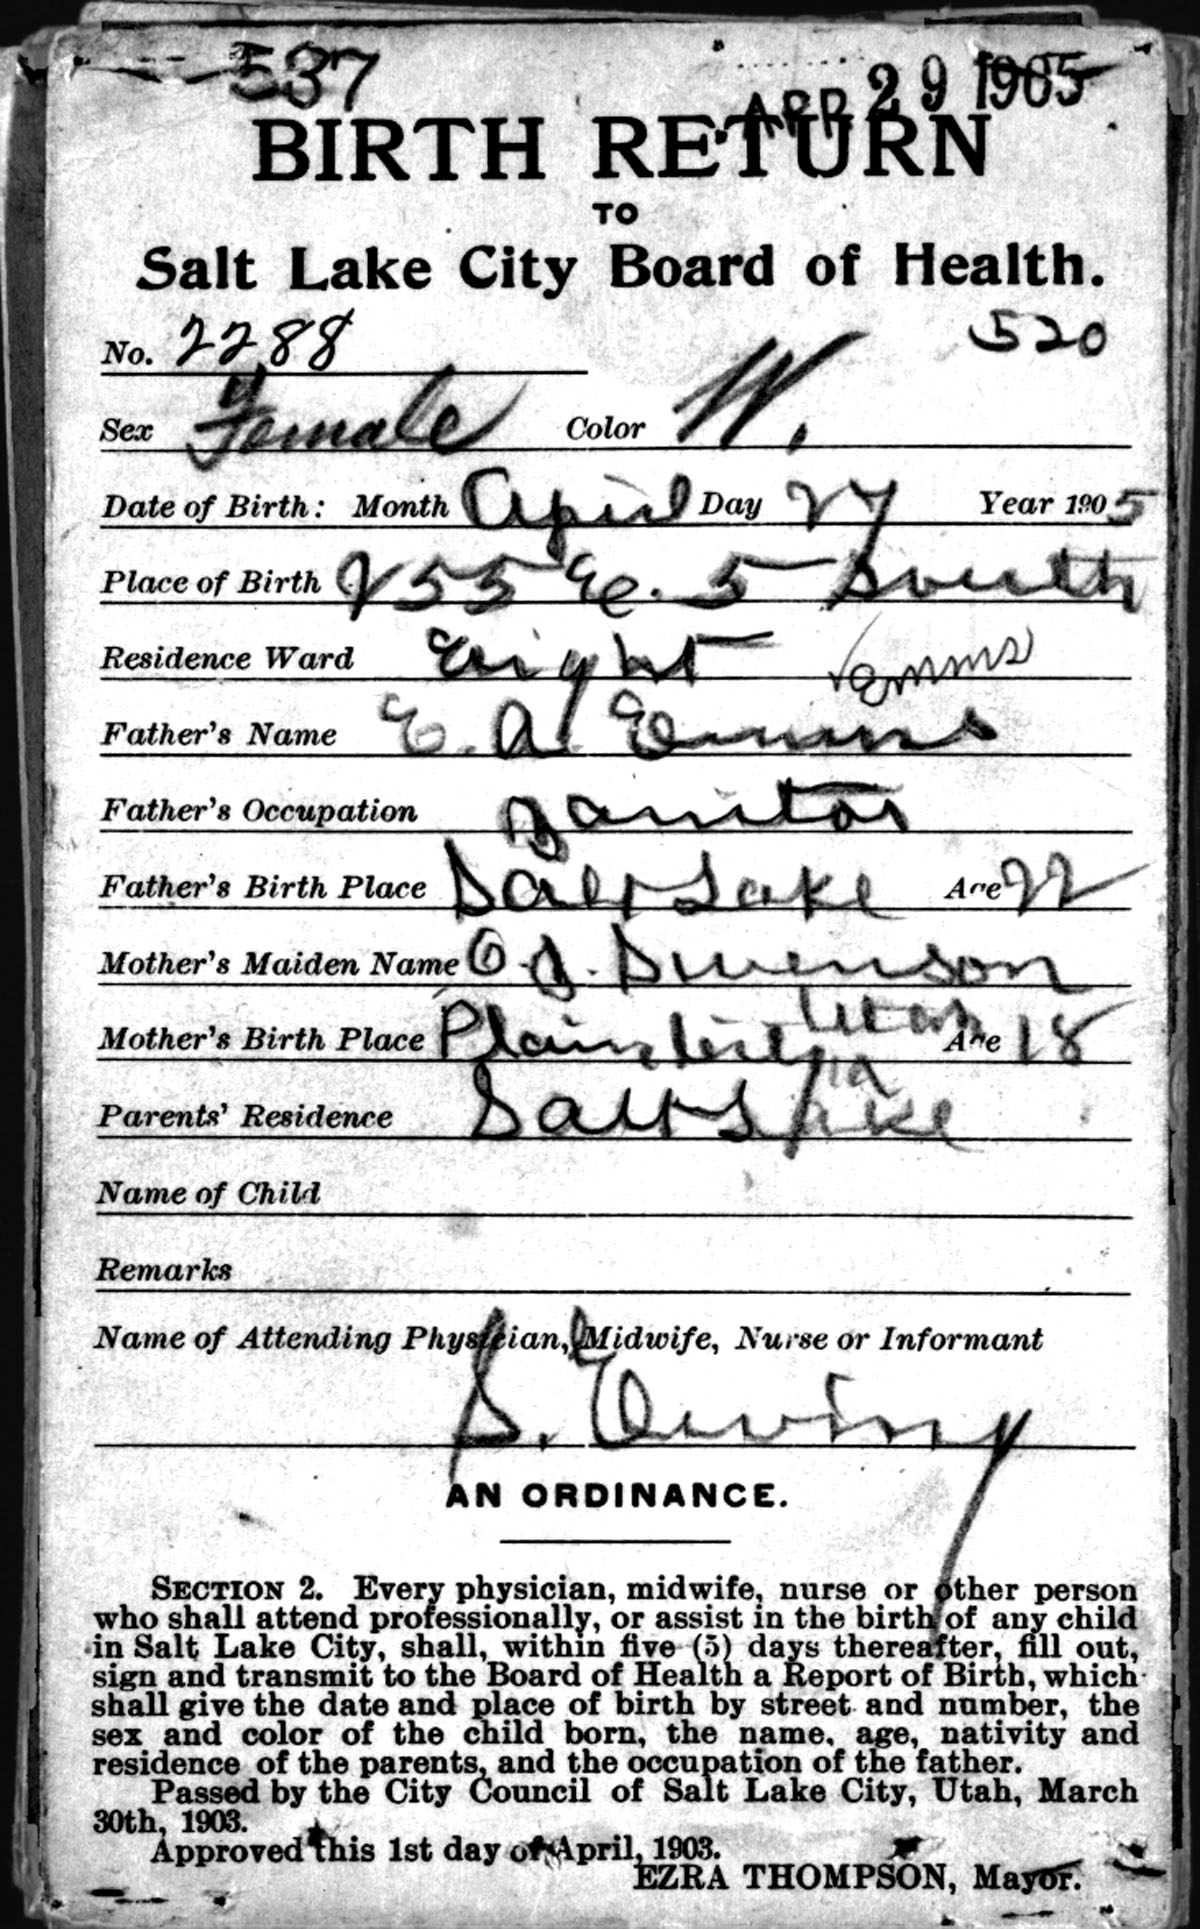 537
APR 29 1905
BIRTH RETURN
TO
Salt Lake City Board of Health.
520
No. 2288
Sex Female Color W.
Date of Birth: Month April Day 27 Year 1905
Place of Birth 255 E. 5 South
Residence Ward Eight
Emms
Father's Name E. A. Emms
Father's Occupation Janitor
Father's Birth Place Salt Lake Age 22
Mother's Maiden Name O. J. Swenson
Mother's Birth Place Utah Age 18
Parents' Residence Salt Lake
Name of Child
Remarks
Name of Attending Physician, Midwife, Nurse or Informant
S. Ewing
AN ORDINANCE.
SECTION 2. Every physician, midwife, nurse or other person
who shall attend professionally, or assist in the birth of any child
in Salt Lake City, shall, within five (5) days thereafter, fill out,
sign and transmit to the Board of Health a Report of Birth, which
shall give the date and place of birth by street and number, the
sex and color of the child born, the name, age, nativity and
residence of the parents, and the occupation of the father.
Passed by the City Council of Salt Lake City, Utah, March
30th, 1903.
Approved this 1st day of April, 1903.
EZRA THOMPSON, Mayor.